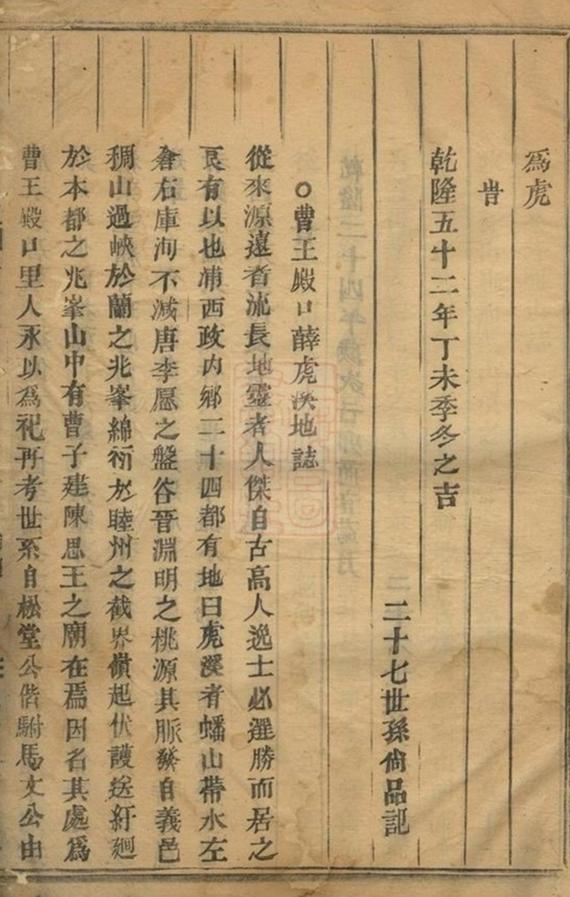 為虎
旹
乾隆五十二年丁未季冬之吉
二十七世孫尙品記
○曹王殿口薛虎溪地誌
從來源遠者流長地靈者人傑自古高人逸士必選勝而居之
良有以也浦西政內鄉二十四都有地曰虎溪者蟠山帶水左
倉右庫洵不減唐李愿之盤谷晉淵明之桃源其脈發自義邑
稠山過峽於蘭之兆峯綿衍於睦州之截界嶺起伏護送紆廻
於本都之兆峯山中有曹子建陳思王之廟在焉因名其處爲
曹王殿口里人永以爲祀再考世系自松堂公偕駙馬文公由